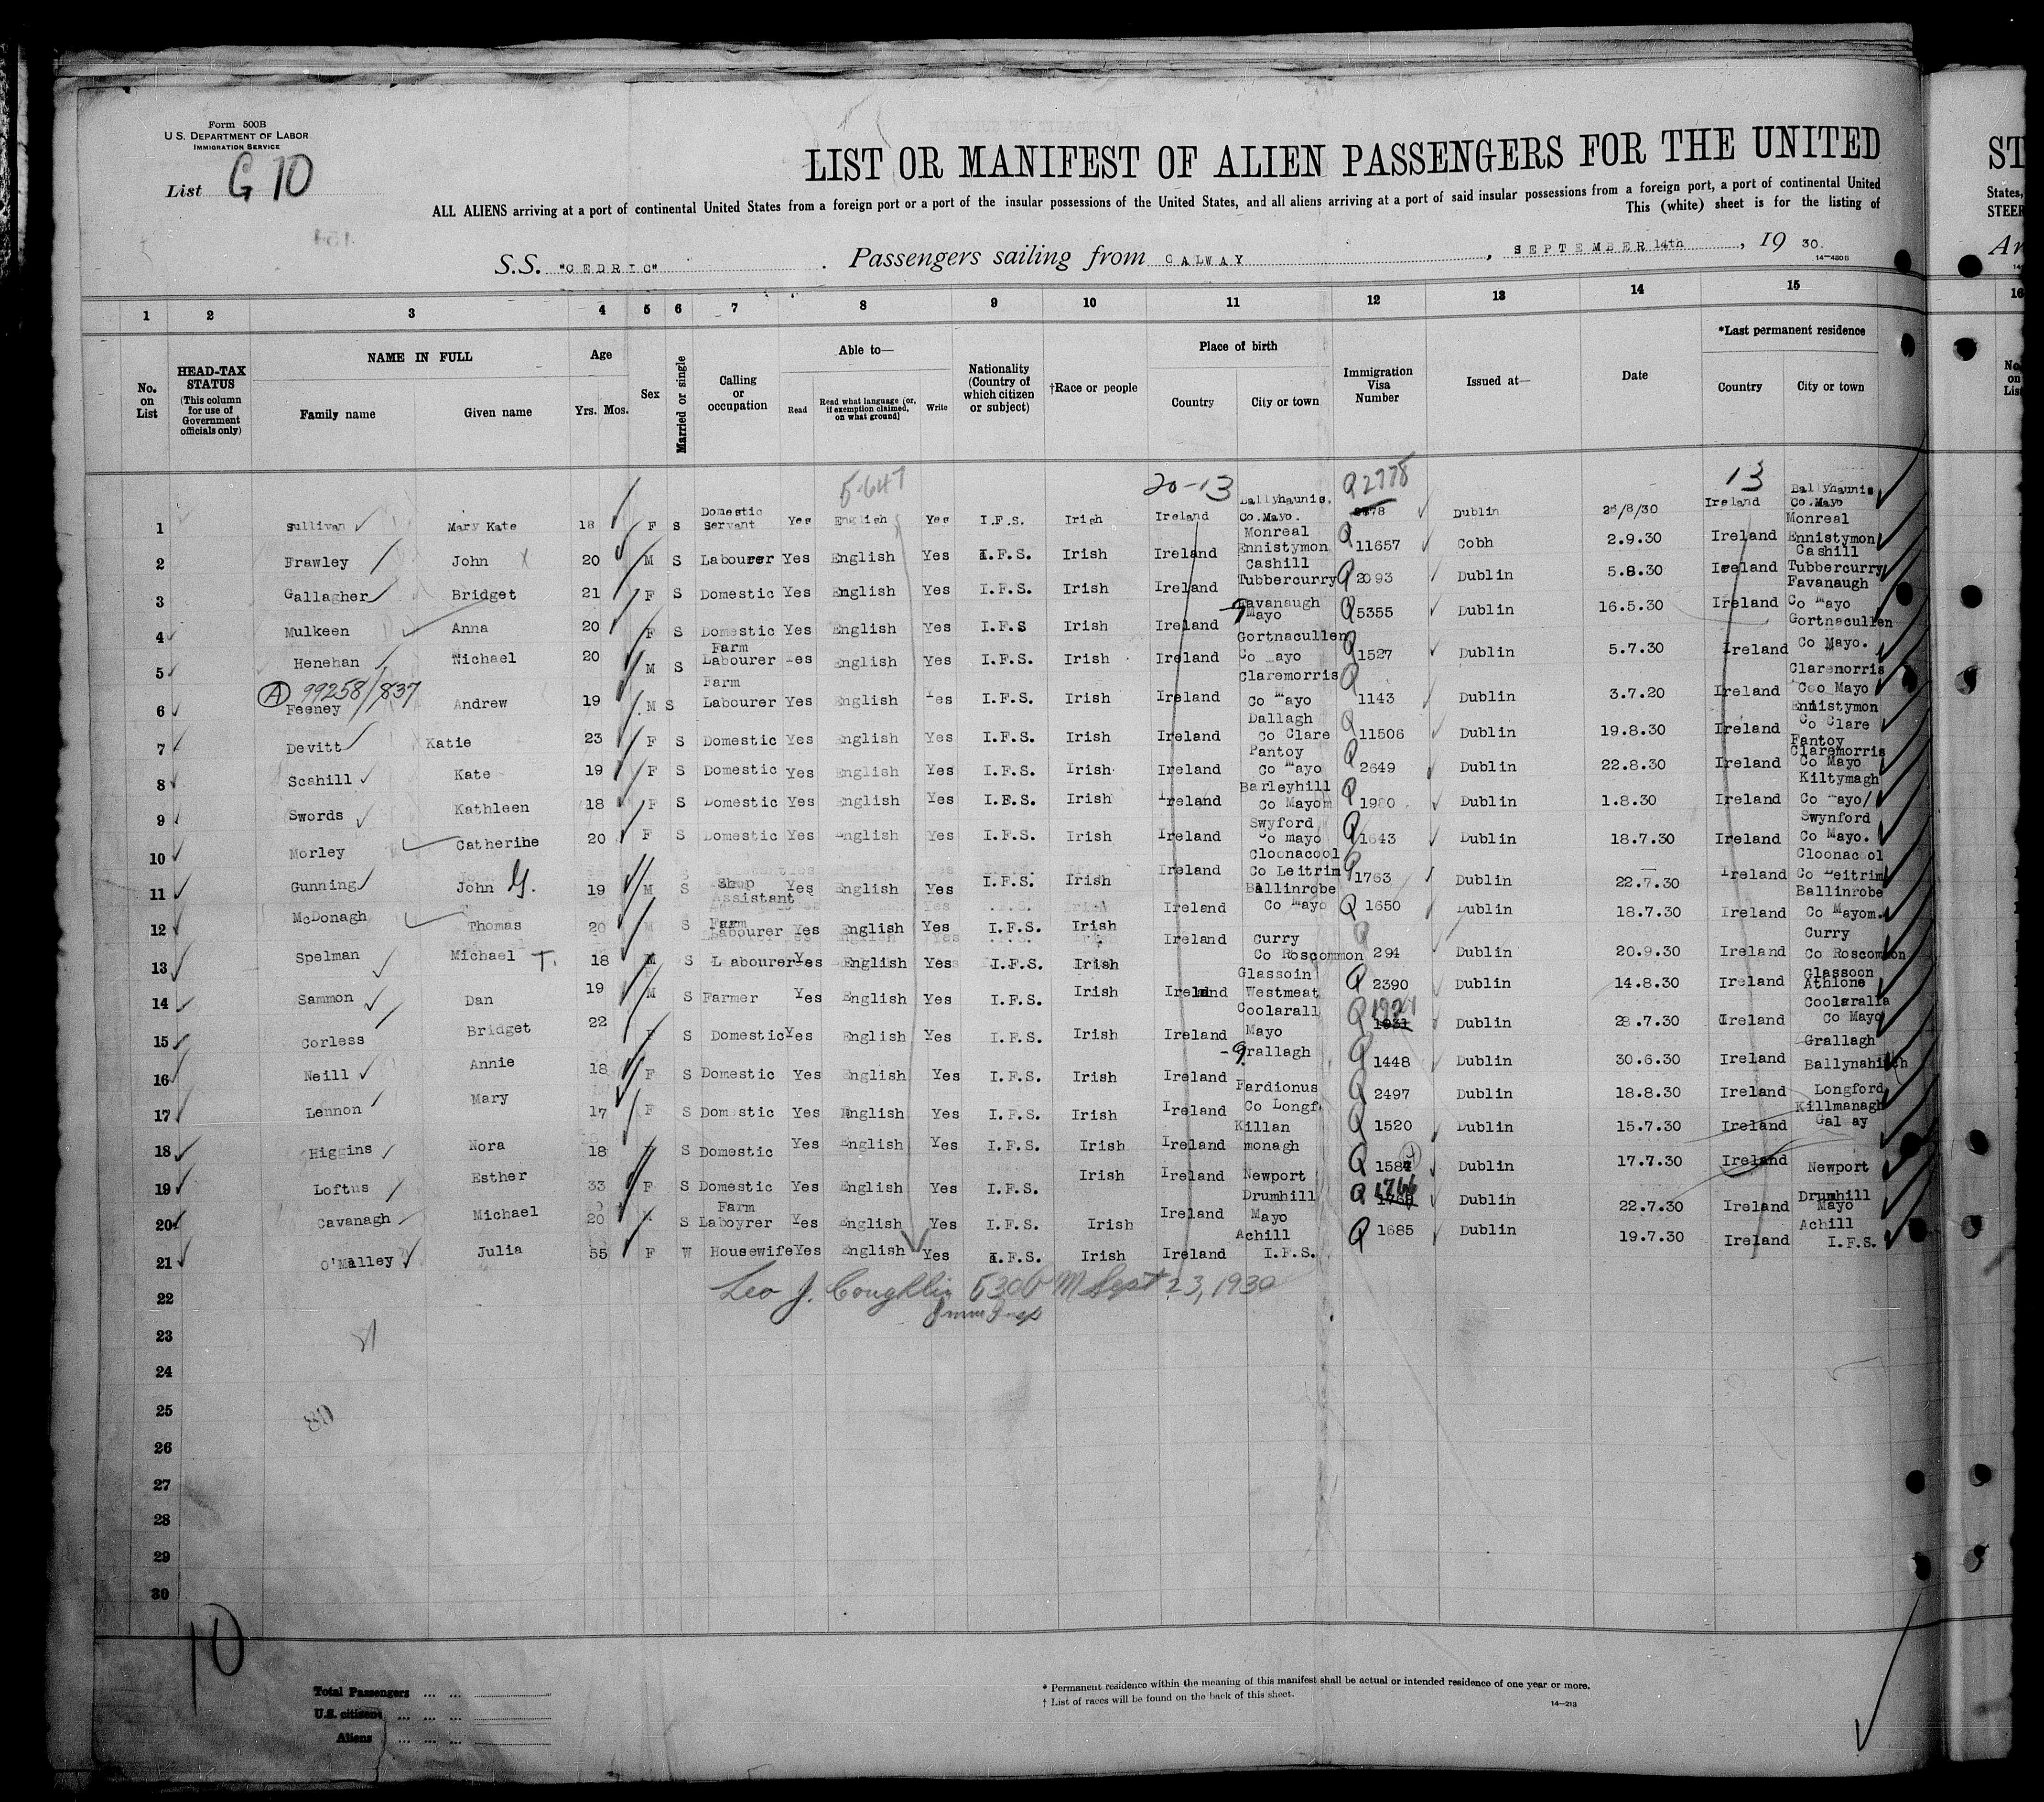 Form 500B
U.S. DEPARTMENT OF LABOR
IMMIGRATION SERVICE
List G 10
LIST OR MANIFEST OF ALIEN PASSENGERS FOR THE UNITED
ALL ALIENS arriving at a port of continental United States from a foreign port or a port of the insular possessions of the United States, and all aliens arriving at a port of said insular possessions from a foreign port, a port of continental United
This (white) sheet is for the listing of
S.S. "CEDRIC" . Passengers sailing from GALWAY , SEPTEMBER 14th , 19 30.
14-4808
1 2 3 4 5 6 7 8 9 10 11 12 13 14 15
No. on List
HEAD-TAX STATUS (This column for use of Government officials only)
NAME IN FULL
Family name Given name
Age
Yrs. Mos.
Sex
Married or single
Calling or occupation
Able to—
Read
Read what language (or, if exemption claimed, on what ground)
Write
Nationality (Country of which citizen or subject)
†Race or people
Place of birth
Country City or town
Immigration Visa Number
Issued at—
Date
*Last permanent residence
Country City or town
5-647 20-13 Q2778 13
1 Sullivan Mary Kate 18 F S Domestic Servant Yes English Yes I.F.S. Irish Ireland Ballyhaunis, Co.Mayo. Dublin 28/8/30 Ireland Ballyhaunis Co.Mayo
2 Frawley John 20 M S Labourer Yes English Yes I.F.S. Irish Ireland Monreal Ennistymon Q 11657 Cobh 2.9.30 Ireland Monreal Ennistymon
3 Gallagher Bridget 21 F S Domestic Yes English Yes I.F.S. Irish Ireland Cashill Tubbercurry Q 2093 Dublin 5.8.30 Ireland Cashill Tubbercurry
4 Mulkeen Anna 20 F S Domestic Yes English Yes I.F.S Irish Ireland Favanaugh Mayo Q 5355 Dublin 16.5.30 Ireland Favanaugh Co Mayo
5 Henehan Michael 20 M S Farm Labourer Yes English Yes I.F.S. Irish Ireland Gortnacullen Co Mayo Q 1527 Dublin 5.7.30 Ireland Gortnacullen Co Mayo.
(A) 99258/837
6 Feeney Andrew 19 M S Farm Labourer Yes English Yes I.F.S. Irish Ireland Claremorris Co Mayo Q 1143 Dublin 3.7.20 Ireland Claremorris Coo Mayo
7 Devitt Katie 23 F S Domestic Yes English Yes I.F.S. Irish Ireland Dallagh Co Clare Q 11506 Dublin 19.8.30 Ireland Ennistymon Co Clare
8 Scahill Kate 19 F S Domestic Yes English Yes I.F.S. Irish Ireland Pantoy Co Mayo Q 2649 Dublin 22.8.30 Ireland Fantoy Claremorris Co Mayo
9 Swords Kathleen 18 F S Domestic Yes English Yes I.F.S. Irish Ireland Barleyhill Co Mayom Q 1980 Dublin 1.8.30 Ireland Kiltymagh Co Mayo/
10 Morley Catherine 20 F S Domestic Yes English Yes I.F.S. Irish Ireland Swyford Co mayo Q 1643 Dublin 18.7.30 Ireland Swynford Co Mayo.
11 Gunning John G. 19 M S Shop Assistant Yes English Yes I.F.S. Irish Ireland Cloonacool Co Leitrim Q 1763 Dublin 22.7.30 Ireland Cloonacool Co Leitrim
12 McDonagh Thomas 20 M S Farm Labourer Yes English Yes I.F.S. Irish Ireland Ballinrobe Co Mayo Q 1650 Dublin 18.7.30 Ireland Ballinrobe Co Mayom.
13 Spelman Michael T. 18 M S Labourer Yes English Yes I.F.S. Irish Ireland Curry Co Roscommon Q 294 Dublin 20.9.30 Ireland Curry Co Roscommon
14 Sammon Dan 19 M S Farmer Yes English Yes I.F.S. Irish Ireland Glassoin Westmeat Q 2390 Dublin 14.8.30 Ireland Glassoon Athlone
15 Corless Bridget 22 F S Domestic Yes English Yes I.F.S. Irish Ireland Coolarall Mayo Q 1921 1931 Dublin 28.7.30 Ireland Coolaralla Co Mayo
16 Neill Annie 18 F S Domestic Yes English Yes I.F.S. Irish Ireland Grallagh Q 1448 Dublin 30.6.30 Ireland Grallagh Ballynahinch
17 Lennon Mary 17 F S Domestic Yes English Yes I.F.S. Irish Ireland Fardionus Co Longf. Q 2497 Dublin 18.8.30 Ireland Longford
18 Higgins Nora 18 F S Domestic Yes English Yes I.F.S. Irish Ireland Killan monagh Q 1520 Dublin 15.7.30 Ireland Killmanagh Galway
19 Loftus Esther 33 F S Domestic Yes English Yes I.F.S. Irish Ireland Newport Q 1587 Dublin 17.7.30 Ireland Newport
20 Cavanagh Michael 20 S Farm Laboyrer Yes English Yes I.F.S. Irish Ireland Drumhill Mayo Q 1766 Dublin 22.7.30 Ireland Drumhill Mayo
21 O'Malley Julia 55 F W Housewife Yes English Yes I.F.S. Irish Ireland Achill I.F.S. Q 1685 Dublin 19.7.30 Ireland Achill I.F.S.
Leo J. Coughlin 530 PM Sept 23, 1930
Imm Insp
22
23
24
25
26
27
28
29
30
10
Total Passengers ... ...
U.S. citizens ... ... ...
Aliens ... ... ...
* Permanent residence within the meaning of this manifest shall be actual or intended residence of one year or more.
† List of races will be found on the back of this sheet.
14-213
ST
States,
STEER
Ar
16
No. on List